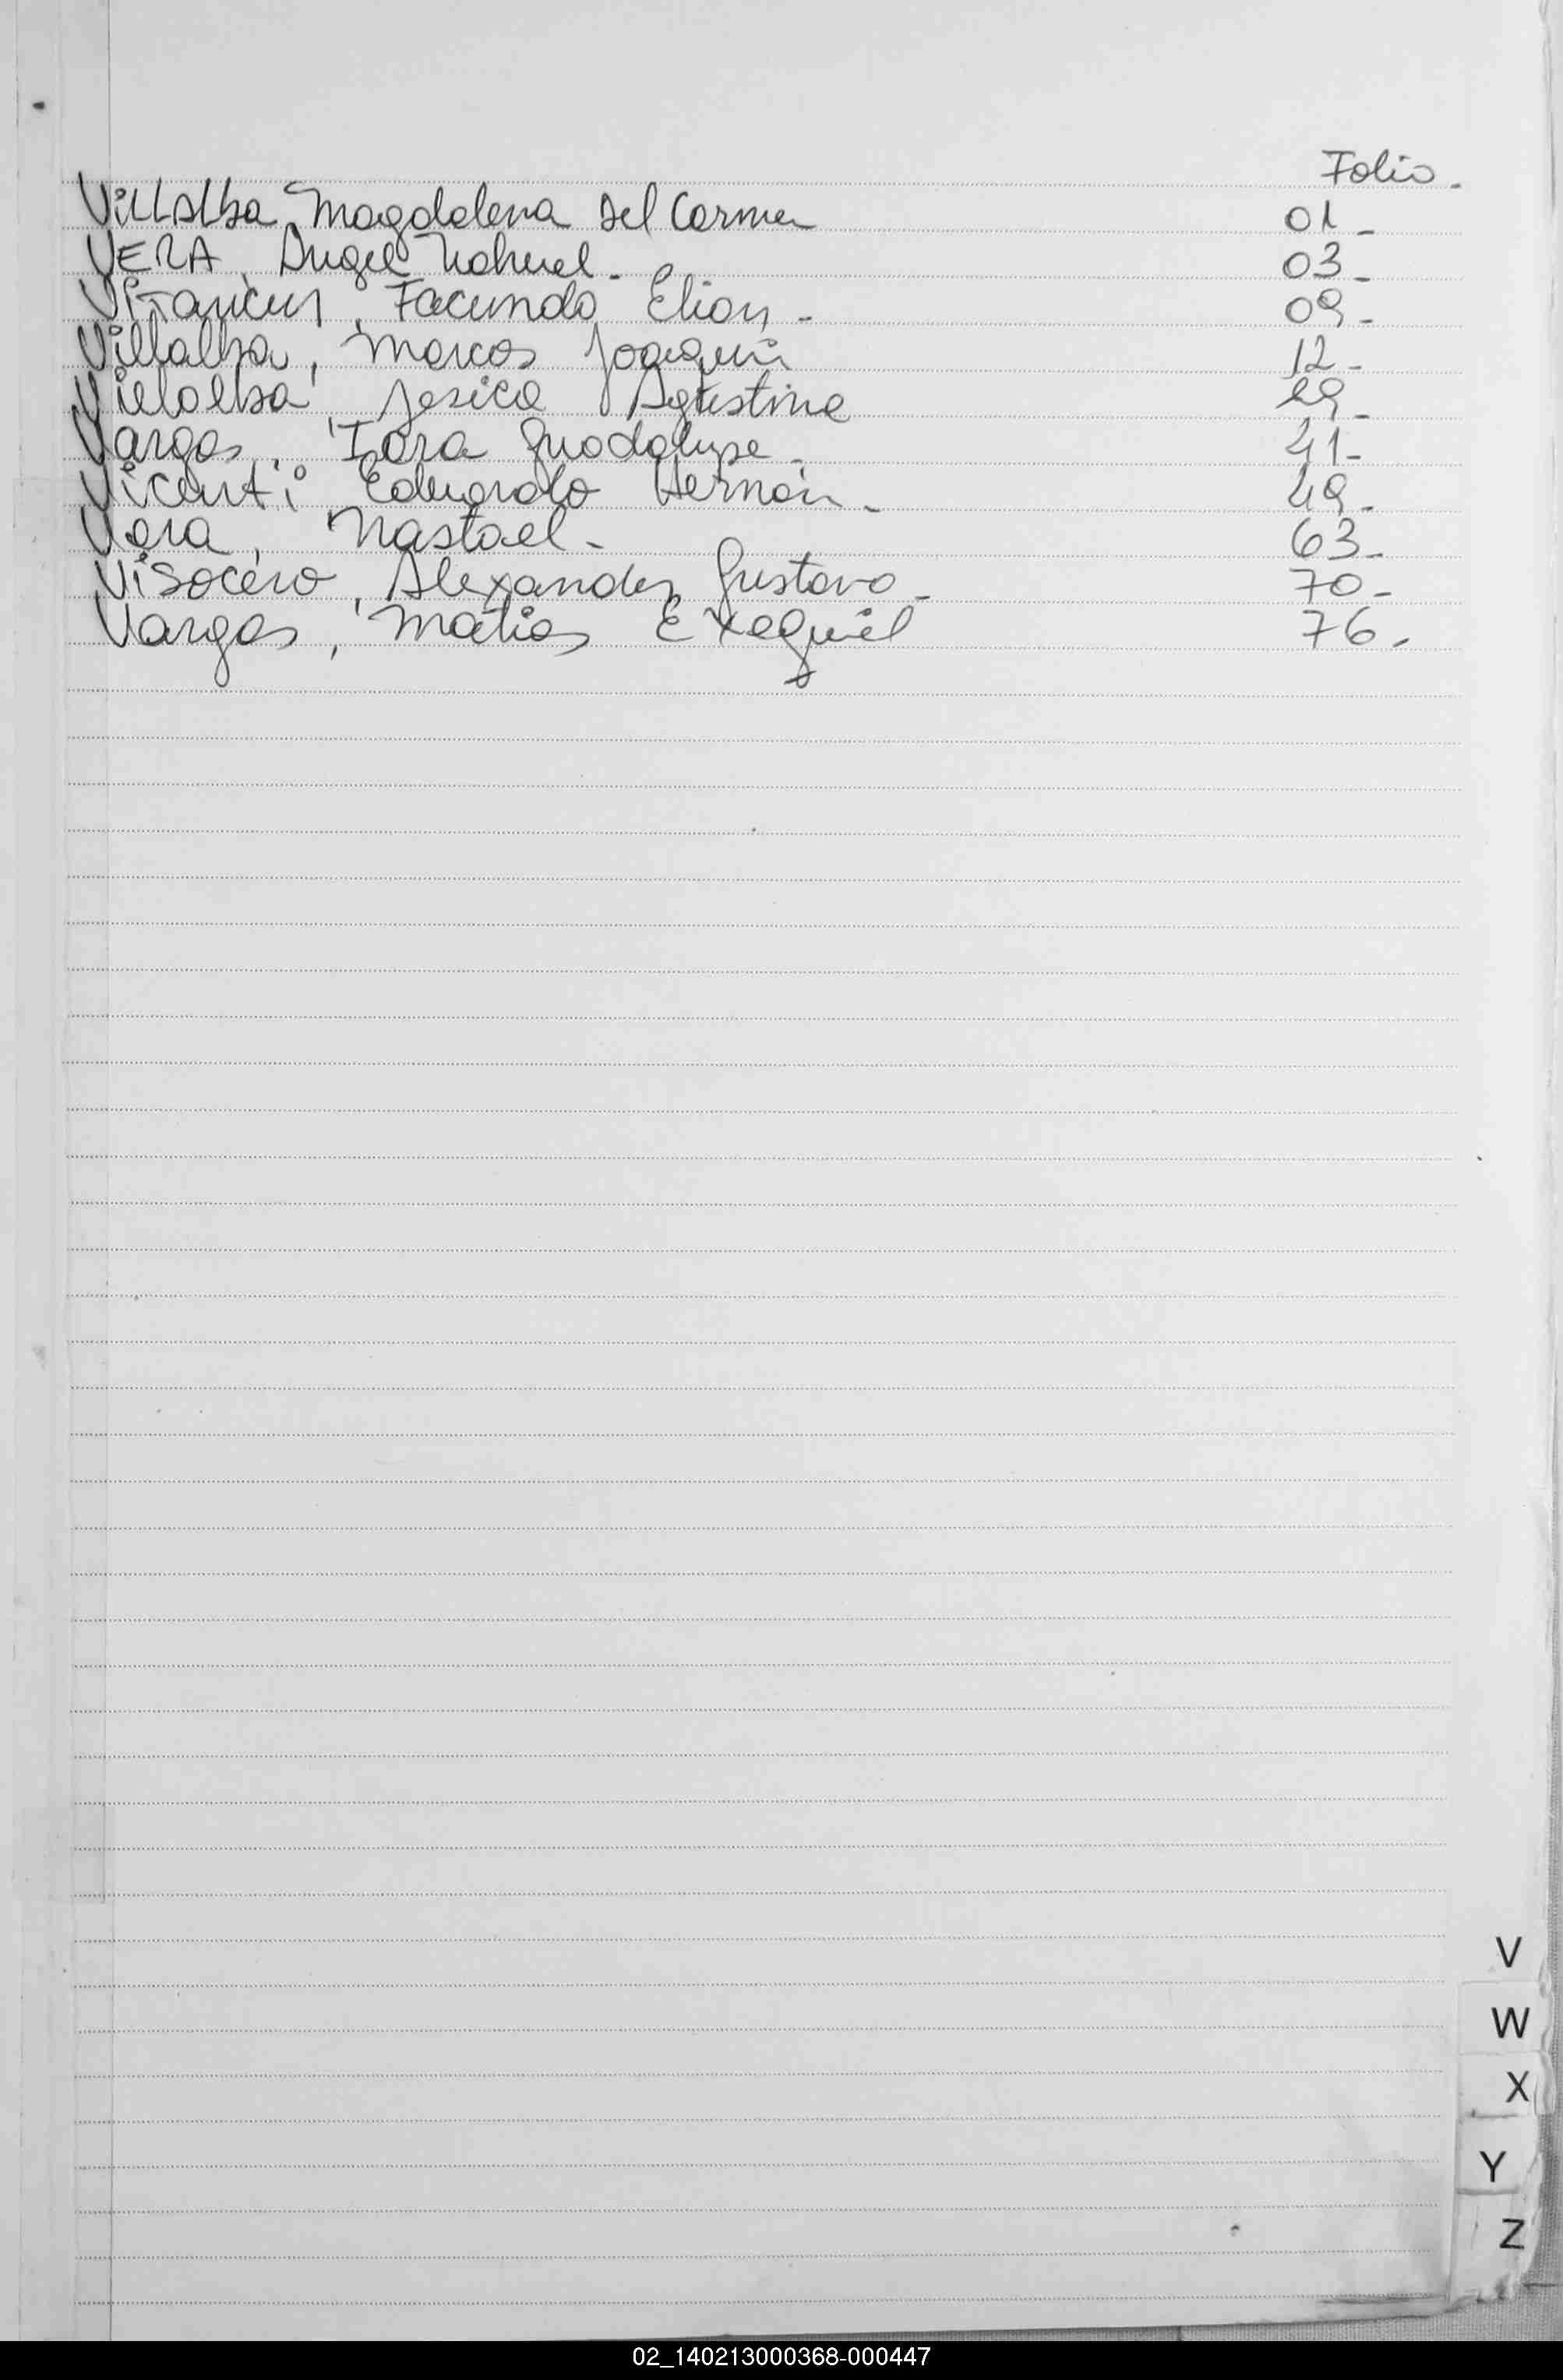 Folio.
Villalba, Magdalena Del Carmen 01-
VERA, Angel Nahuel- 03-
Vitancur, Facundo Elian- 09-
Villalba, Marcos Joaquin 12-
Villalba, Jesica Agustina 29-
Vargas, Iara Guadalupe- 41-
Vicenti Eduardo Hernán- 49-
Vera, Nastael- 63-
Visocero, Alexander Gustavo- 70-
Vargas, Matias Exequiel 76-
V
W
X
Y
Z
02_140213000368-000447